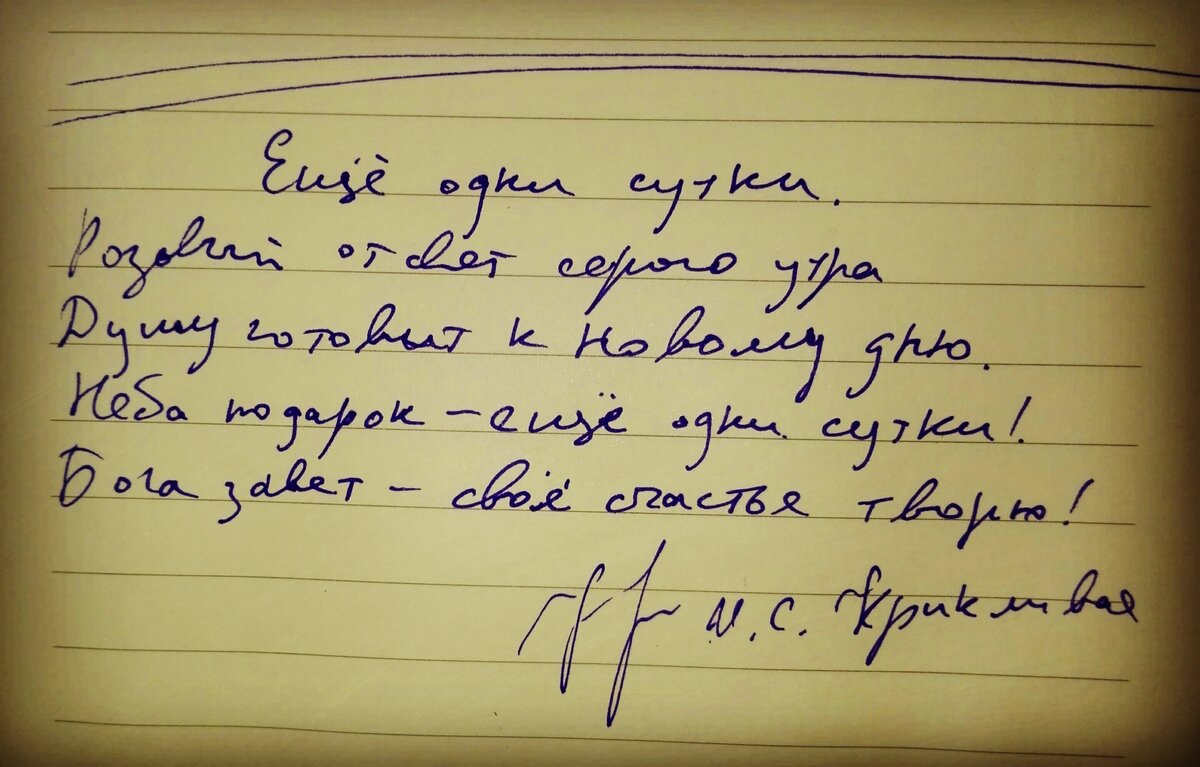 Ещё одни сутки.
Розовый отсвет серого утра
Душу готовит к новому дню.
Неба подарок – ещё одни сутки!
Бога завет – своё счастье творю!
И.С. Крикливая